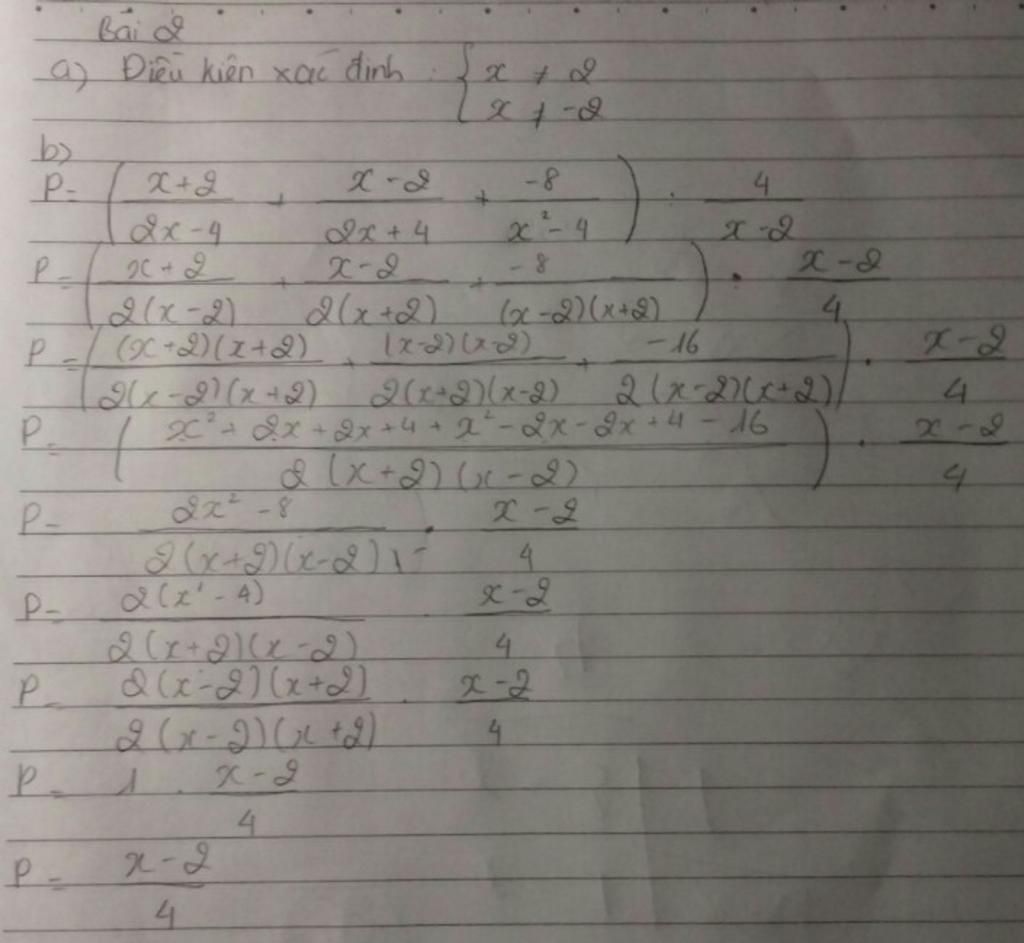 Bài 2
a) Điều kiện xác định : { x ≠ 2
x ≠ -2
b)
P = ( (x+2)/(2x-4) + (x-2)/(2x+4) + (-8)/(x²-4) ) : 4/(x-2)
P = ( (x+2)/(2(x-2)) + (x-2)/(2(x+2)) + (-8)/((x-2)(x+2)) ) . (x-2)/4
P = ( ((x+2)(x+2))/(2(x-2)(x+2)) + ((x-2)(x-2))/(2(x+2)(x-2)) + (-16)/(2(x-2)(x+2)) ) . (x-2)/4
P = ( (x²+2x+2x+4+x²-2x-2x+4-16)/(2(x+2)(x-2)) ) . (x-2)/4
P = (2x²-8)/(2(x+2)(x-2)) . (x-2)/4
P = (2(x²-4))/(2(x+2)(x-2)) (x-2)/4
P = (2(x-2)(x+2))/(2(x-2)(x+2)) . (x-2)/4
P = 1 . (x-2)/4
P = (x-2)/4